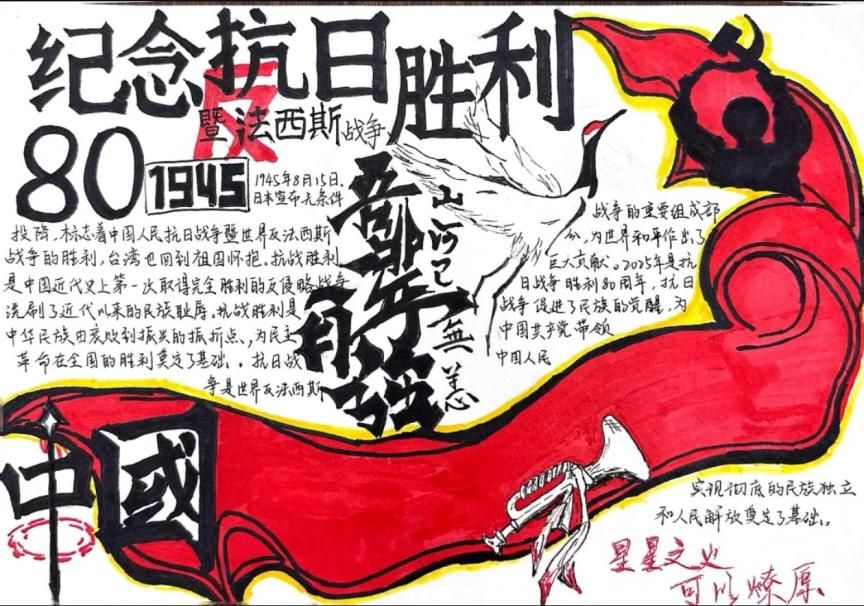 纪念抗日胜利
暨反法西斯战争
80
1945
1945年8月15日,
日本宣布无条件
投降,标志着中国人民抗日战争暨世界反法西斯
战争的胜利,台湾也回到祖国怀抱。抗战胜利
是中国近代史上第一次取得完全胜利的反侵略战争
洗刷了近代以来的民族耻辱。抗战胜利是
中华民族由衰败到振兴的振折点,为民主
革命在全国的胜利奠定了基础。。抗日战
争是世界反法西斯
吾辈自强
山河已無恙
战争的重要组成部
分,为世界和平作出了
巨大贡献。2025年是抗
日战争胜利80周年,抗日
战争促进了民族的觉醒,为
中国共产党带领
中国人民
实现彻底的民族独立
和人民解放奠定了基础。。
中國
星星之火
可以燎原